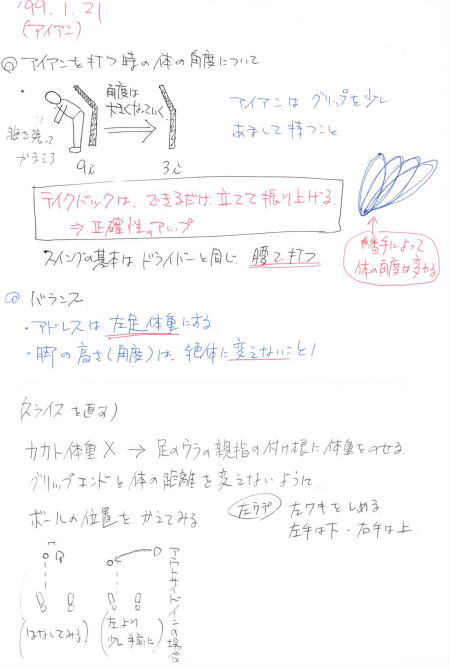 '99.1.21
(アイアン)
◎ アイアンを打つ時の体の角度について
角度は
大きくなっていく
胸を張って
かまえる
9i
3i
アイアンは グリップを少し
あまして持つこと
テイクバックは、できるだけ立てて振り上げる。
⇒ 正確性のアップ
番手によって
体の角度は変わる
スイングの基本は、ドライバーと同じ、腰で打つ
◎ バランス
・アドレスは 左足体重にする
・脚の高さ(角度)は、絶体に変えないこと!
(スライスを直す)
カカト体重 × → 足のウラの親指の付け根に体重をのせる
グリップエンドと体の距離を変えないように
ボールの位置をかえてみる
左ウデ
左ワキをしめる
左手は下・右手は上
(はなしてみる)
(左より
少し手前に)
アウトサイドインの場合